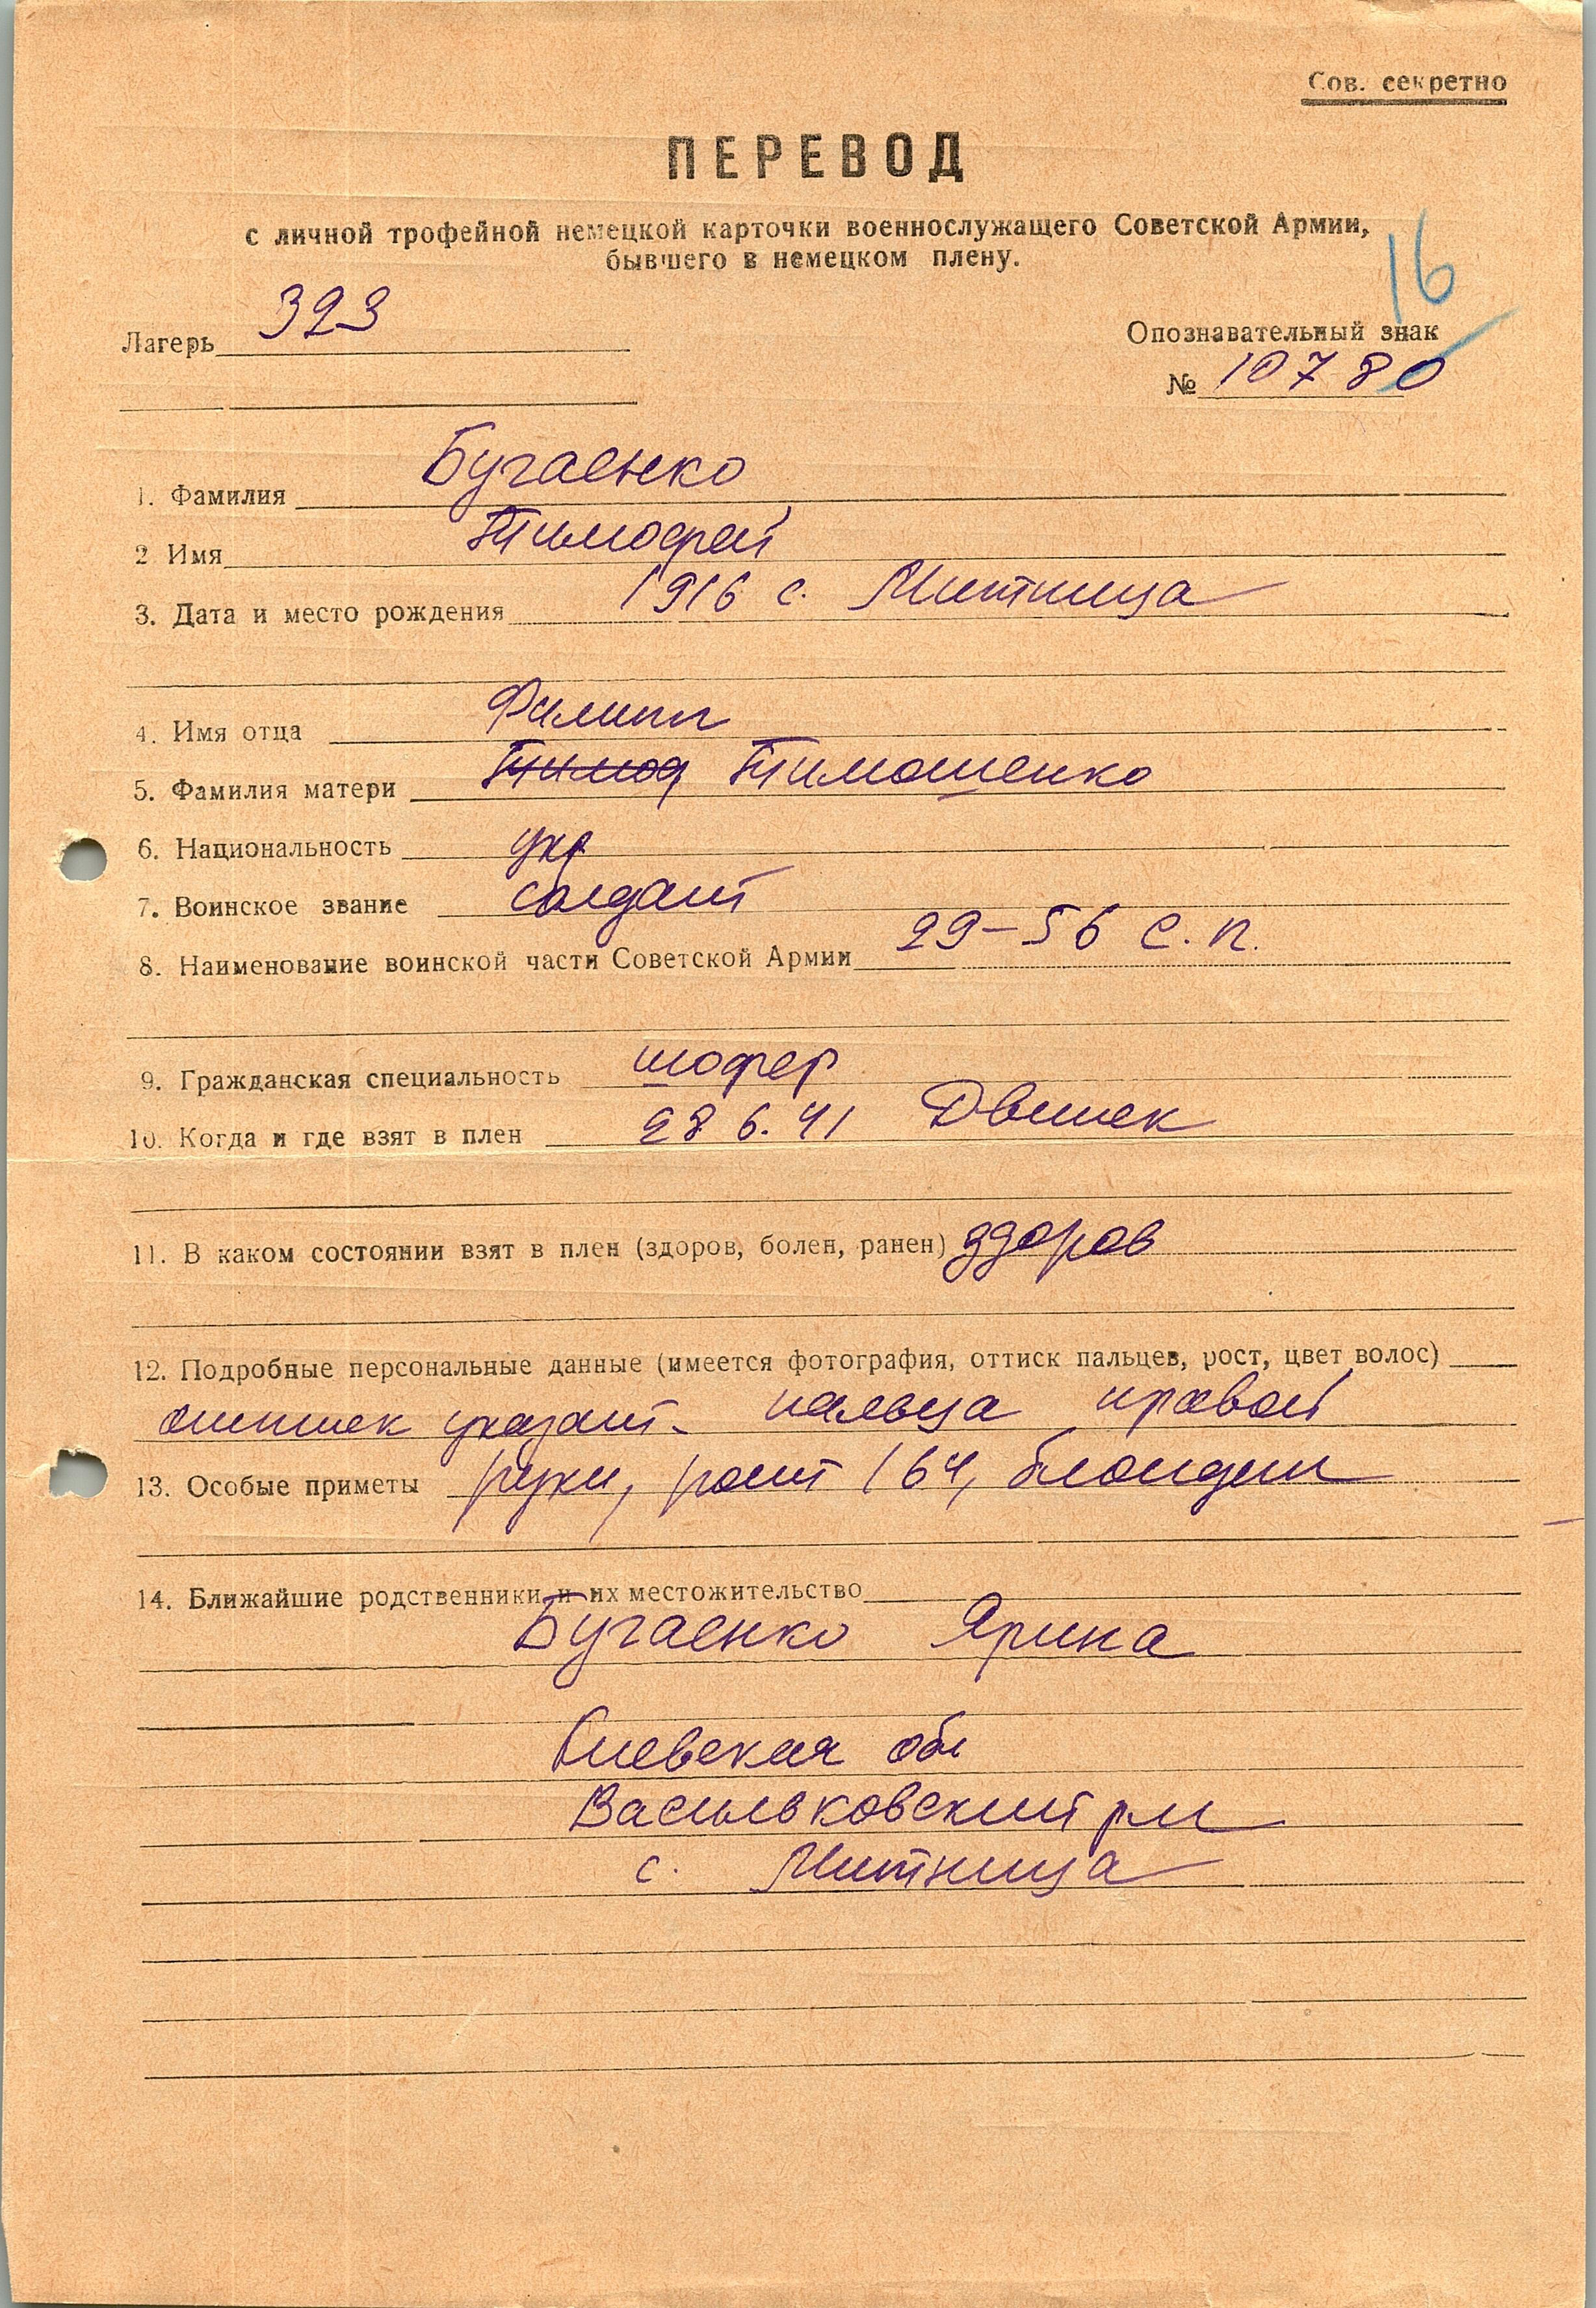 Сов. секретно
ПЕРЕВОД
с личной трофейной немецкой карточки военнослужащего Советской Армии,
бывшего в немецком плену.
16
Лагерь 323
Опознавательный знак
№ 10780
1. Фамилия Бугаенко
2 Имя Тимофей
3. Дата и место рождения 1916 с. Митница
4. Имя отца Филипп
5. Фамилия матери Тимоф Тимошенко
6. Национальность укр
7. Воинское звание солдат
8. Наименование воинской части Советской Армии 29-56 с.п.
9. Гражданская специальность шофер
10. Когда и где взят в плен 28 6.41 Двинск
11. В каком состоянии взят в плен (здоров, болен, ранен) здоров
12. Подробные персональные данные (имеется фотография, оттиск пальцев, рост, цвет волос)
оттиск указат- пальца правой
13. Особые приметы руки, рост 164, блондин
14. Ближайшие родственники и их местожительство
Бугаенко Ярина
Киевская обл
Васильковский р-н
с. Митница